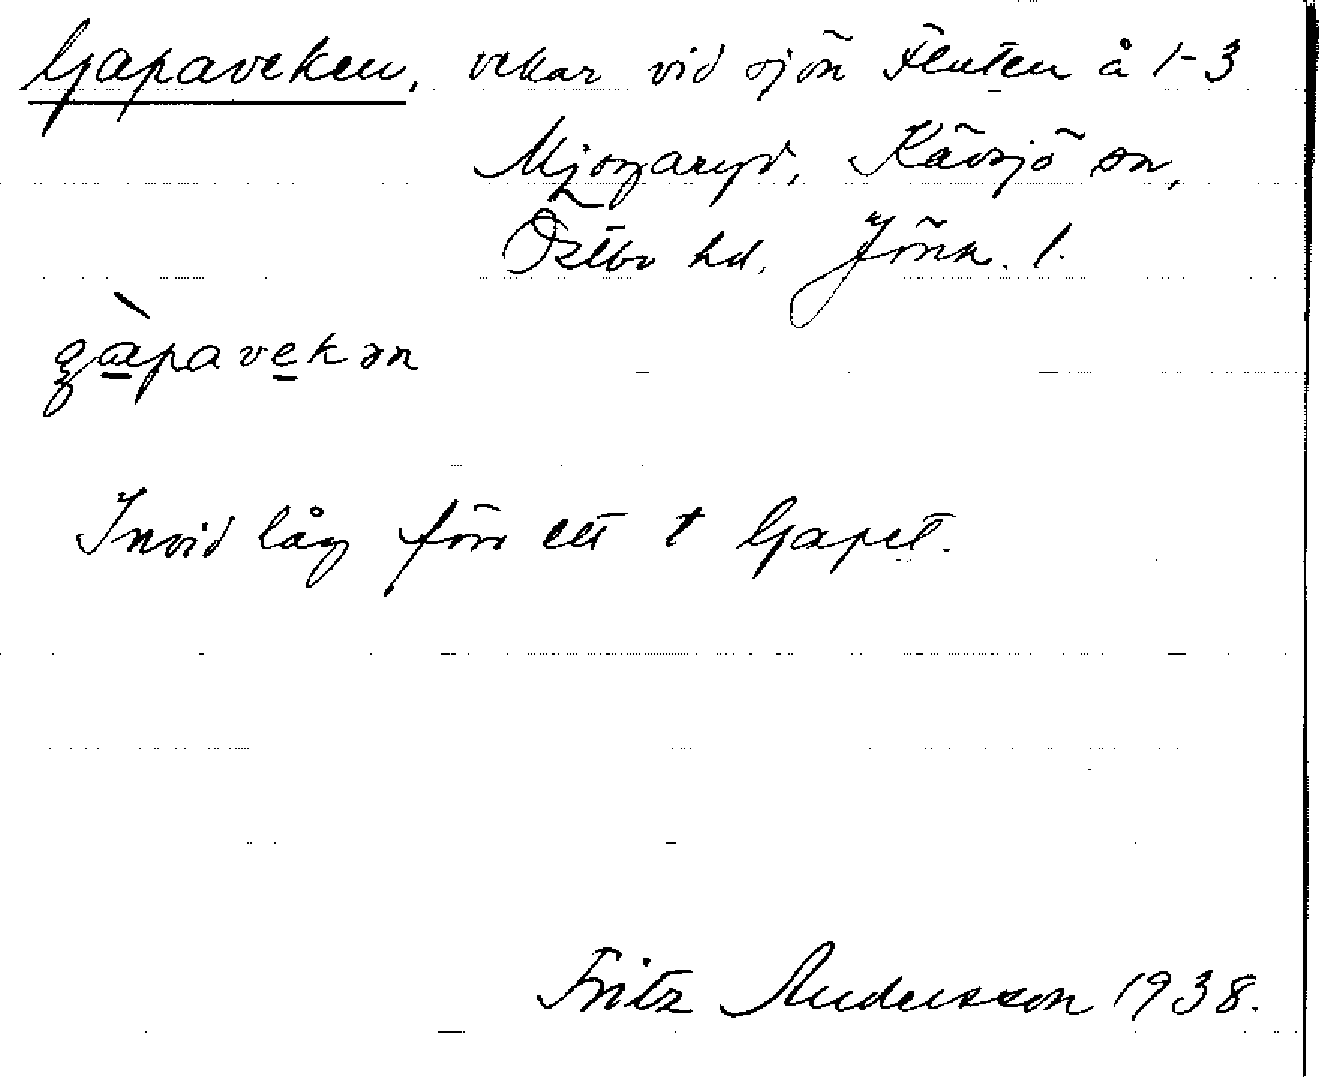 Gapaveken, vikar vid sjön Flaten å 1-3
Mjogaryd, Kävsjö sn,
Östbo hd. Jönk. l.
gàpavekən
Invid låg förr ett t Gapet.
Fritz Andersson 1938.